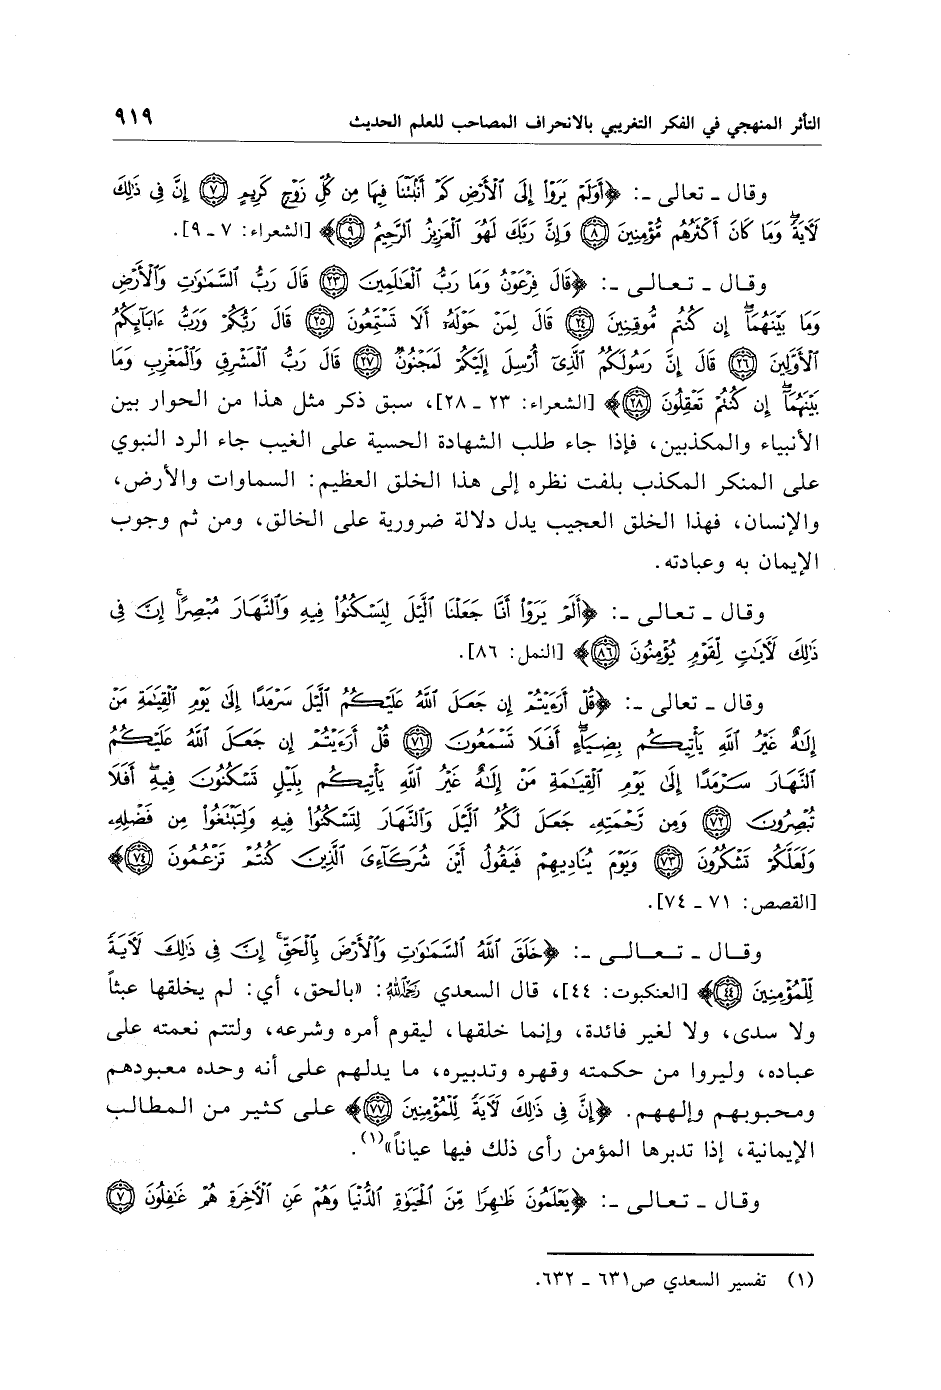 التأثر المنهجي في الفكر التغريبي بالانحراف المصاحب للعلم الحديث ٩١٩
وقال ـ تعالى ـ: ﴿أَوَلَمْ يَرَوْا إِلَى ٱلْأَرْضِ كَمْ أَنۢبَتْنَا فِيهَا مِن كُلِّ زَوْجٍ كَرِيمٍ ﴿٧﴾ إِنَّ فِى ذَٰلِكَ
لَآيَةً وَمَا كَانَ أَكْثَرُهُم مُّؤْمِنِينَ ﴿٨﴾ وَإِنَّ رَبَّكَ لَهُوَ ٱلْعَزِيزُ ٱلرَّحِيمُ ﴿٩﴾﴾ [الشعراء: ٧ ـ ٩].
وقـال ـ تـعـالـى ـ: ﴿قَالَ فِرْعَوْنُ وَمَا رَبُّ ٱلْعَٰلَمِينَ ﴿٢٣﴾ قَالَ رَبُّ ٱلسَّمَٰوَٰتِ وَٱلْأَرْضِ
وَمَا بَيْنَهُمَآ إِن كُنتُم مُّوقِنِينَ ﴿٢٤﴾ قَالَ لِمَنْ حَوْلَهُۥٓ أَلَا تَسْتَمِعُونَ ﴿٢٥﴾ قَالَ رَبُّكُمْ وَرَبُّ ءَابَآئِكُمُ
ٱلْأَوَّلِينَ ﴿٢٦﴾ قَالَ إِنَّ رَسُولَكُمُ ٱلَّذِىٓ أُرْسِلَ إِلَيْكُمْ لَمَجْنُونٌ ﴿٢٧﴾ قَالَ رَبُّ ٱلْمَشْرِقِ وَٱلْمَغْرِبِ وَمَا
بَيْنَهُمَآ إِن كُنتُمْ تَعْقِلُونَ ﴿٢٨﴾﴾ [الشعراء: ٢٣ ـ ٢٨]، سبق ذكر مثل هذا من الحوار بين
الأنبياء والمكذبين، فإذا جاء طلب الشهادة الحسية على الغيب جاء الرد النبوي
على المنكر المكذب بلفت نظره إلى هذا الخلق العظيم: السماوات والأرض،
والإنسان، فهذا الخلق العجيب يدل دلالة ضرورية على الخالق، ومن ثم وجوب
الإيمان به وعبادته.
وقال ـ تعالى ـ: ﴿أَلَمْ يَرَوْا أَنَّا جَعَلْنَا ٱلَّيْلَ لِيَسْكُنُوا فِيهِ وَٱلنَّهَارَ مُبْصِرًا إِنَّ فِى
ذَٰلِكَ لَآيَٰتٍ لِّقَوْمٍ يُؤْمِنُونَ ﴿٨٦﴾﴾ [النمل: ٨٦].
وقال ـ تعالى ـ: ﴿قُلْ أَرَءَيْتُمْ إِن جَعَلَ ٱللَّهُ عَلَيْكُمُ ٱلَّيْلَ سَرْمَدًا إِلَىٰ يَوْمِ ٱلْقِيَٰمَةِ مَنْ
إِلَٰهٌ غَيْرُ ٱللَّهِ يَأْتِيكُم بِضِيَآءٍ أَفَلَا تَسْمَعُونَ ﴿٧١﴾ قُلْ أَرَءَيْتُمْ إِن جَعَلَ ٱللَّهُ عَلَيْكُمُ
ٱلنَّهَارَ سَرْمَدًا إِلَىٰ يَوْمِ ٱلْقِيَٰمَةِ مَنْ إِلَٰهٌ غَيْرُ ٱللَّهِ يَأْتِيكُم بِلَيْلٍ تَسْكُنُونَ فِيهِ أَفَلَا
تُبْصِرُونَ ﴿٧٢﴾ وَمِن رَّحْمَتِهِۦ جَعَلَ لَكُمُ ٱلَّيْلَ وَٱلنَّهَارَ لِتَسْكُنُوا فِيهِ وَلِتَبْتَغُوا مِن فَضْلِهِۦ
وَلَعَلَّكُمْ تَشْكُرُونَ ﴿٧٣﴾ وَيَوْمَ يُنَادِيهِمْ فَيَقُولُ أَيْنَ شُرَكَآءِىَ ٱلَّذِينَ كُنتُمْ تَزْعُمُونَ ﴿٧٤﴾﴾
[القصص: ٧١ ـ ٧٤].
وقـال ـ تـعـالـى ـ: ﴿خَلَقَ ٱللَّهُ ٱلسَّمَٰوَٰتِ وَٱلْأَرْضَ بِٱلْحَقِّ إِنَّ فِى ذَٰلِكَ لَآيَةً
لِّلْمُؤْمِنِينَ ﴿٤٤﴾﴾ [العنكبوت: ٤٤]، قال السعدي رَحِمَهُ ٱللَّهُ: «بالحق، أي: لم يخلقها عبثاً
ولا سدى، ولا لغير فائدة، وإنما خلقها، ليقوم أمره وشرعه، ولتتم نعمته على
عباده، وليروا من حكمته وقهره وتدبيره، ما يدلهم على أنه وحده معبودهم
ومحبوبهم وإلههم. ﴿إِنَّ فِى ذَٰلِكَ لَآيَةً لِّلْمُؤْمِنِينَ ﴿٧٧﴾﴾ على كثير من المطالب
الإيمانية، إذا تدبرها المؤمن رأى ذلك فيها عياناً»(١).
وقـال ـ تـعـالـى ـ: ﴿يَعْلَمُونَ ظَٰهِرًا مِّنَ ٱلْحَيَوٰةِ ٱلدُّنْيَا وَهُمْ عَنِ ٱلْآخِرَةِ هُمْ غَٰفِلُونَ ﴿٧﴾
(١) تفسير السعدي ص٦٣١ ـ ٦٣٢.